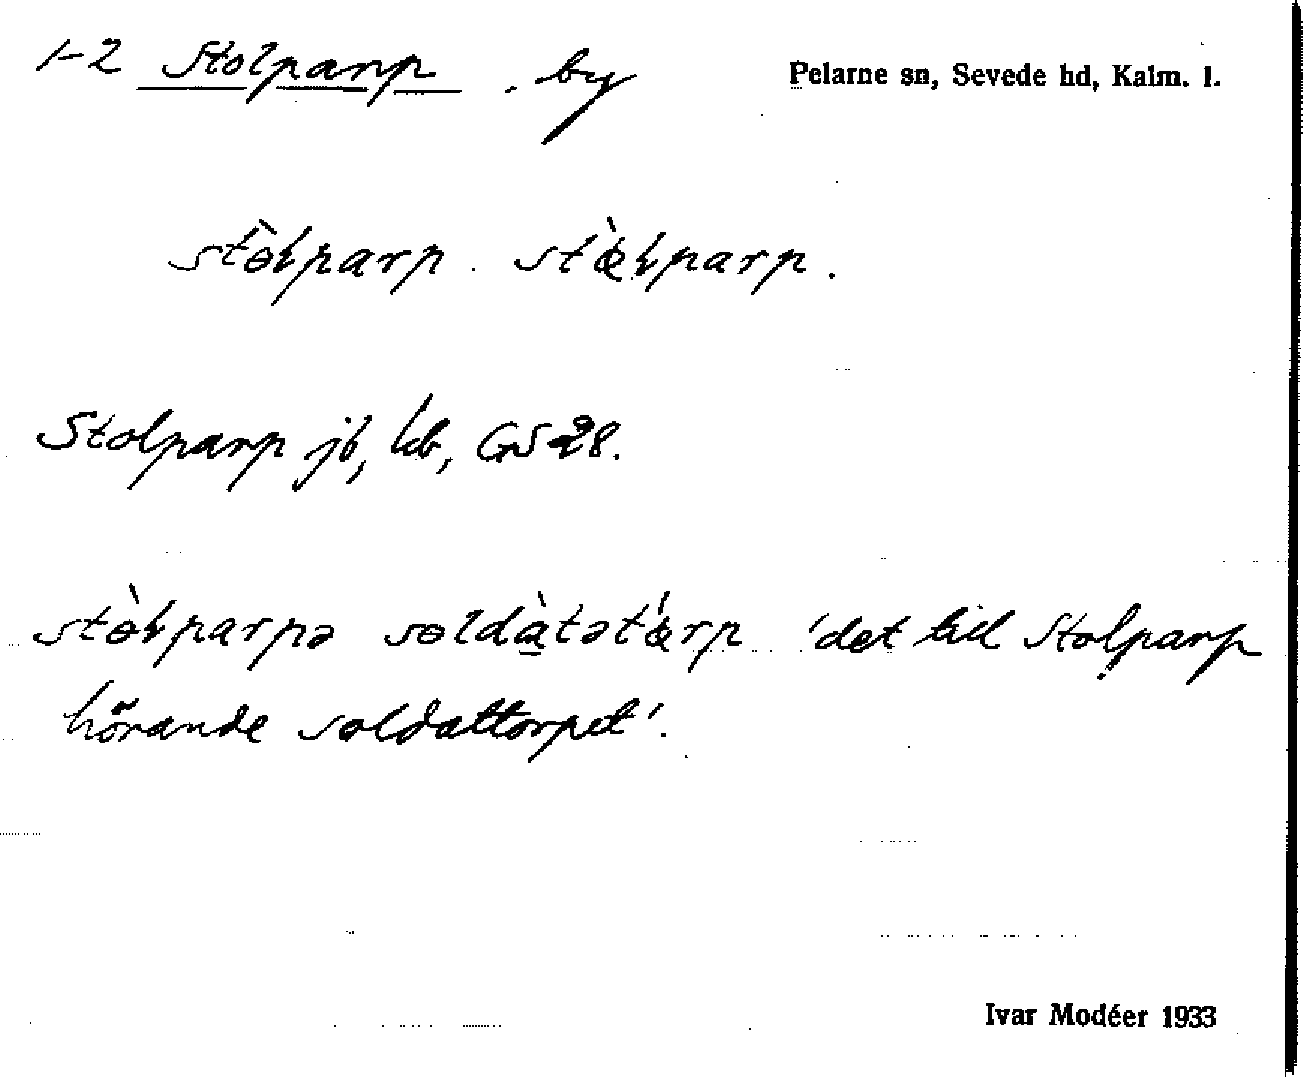 1-2 Stolparp, by
Pelarne sn, Sevede hd, Kalm. l.
stòɫparp. stæ̀ɫparp.
Stolparp jb, kb, GS 28.
stòɫparpə soldàtətǽrp 'det till Stolparp
hörande soldattorpet'.
Ivar Modéer 1933